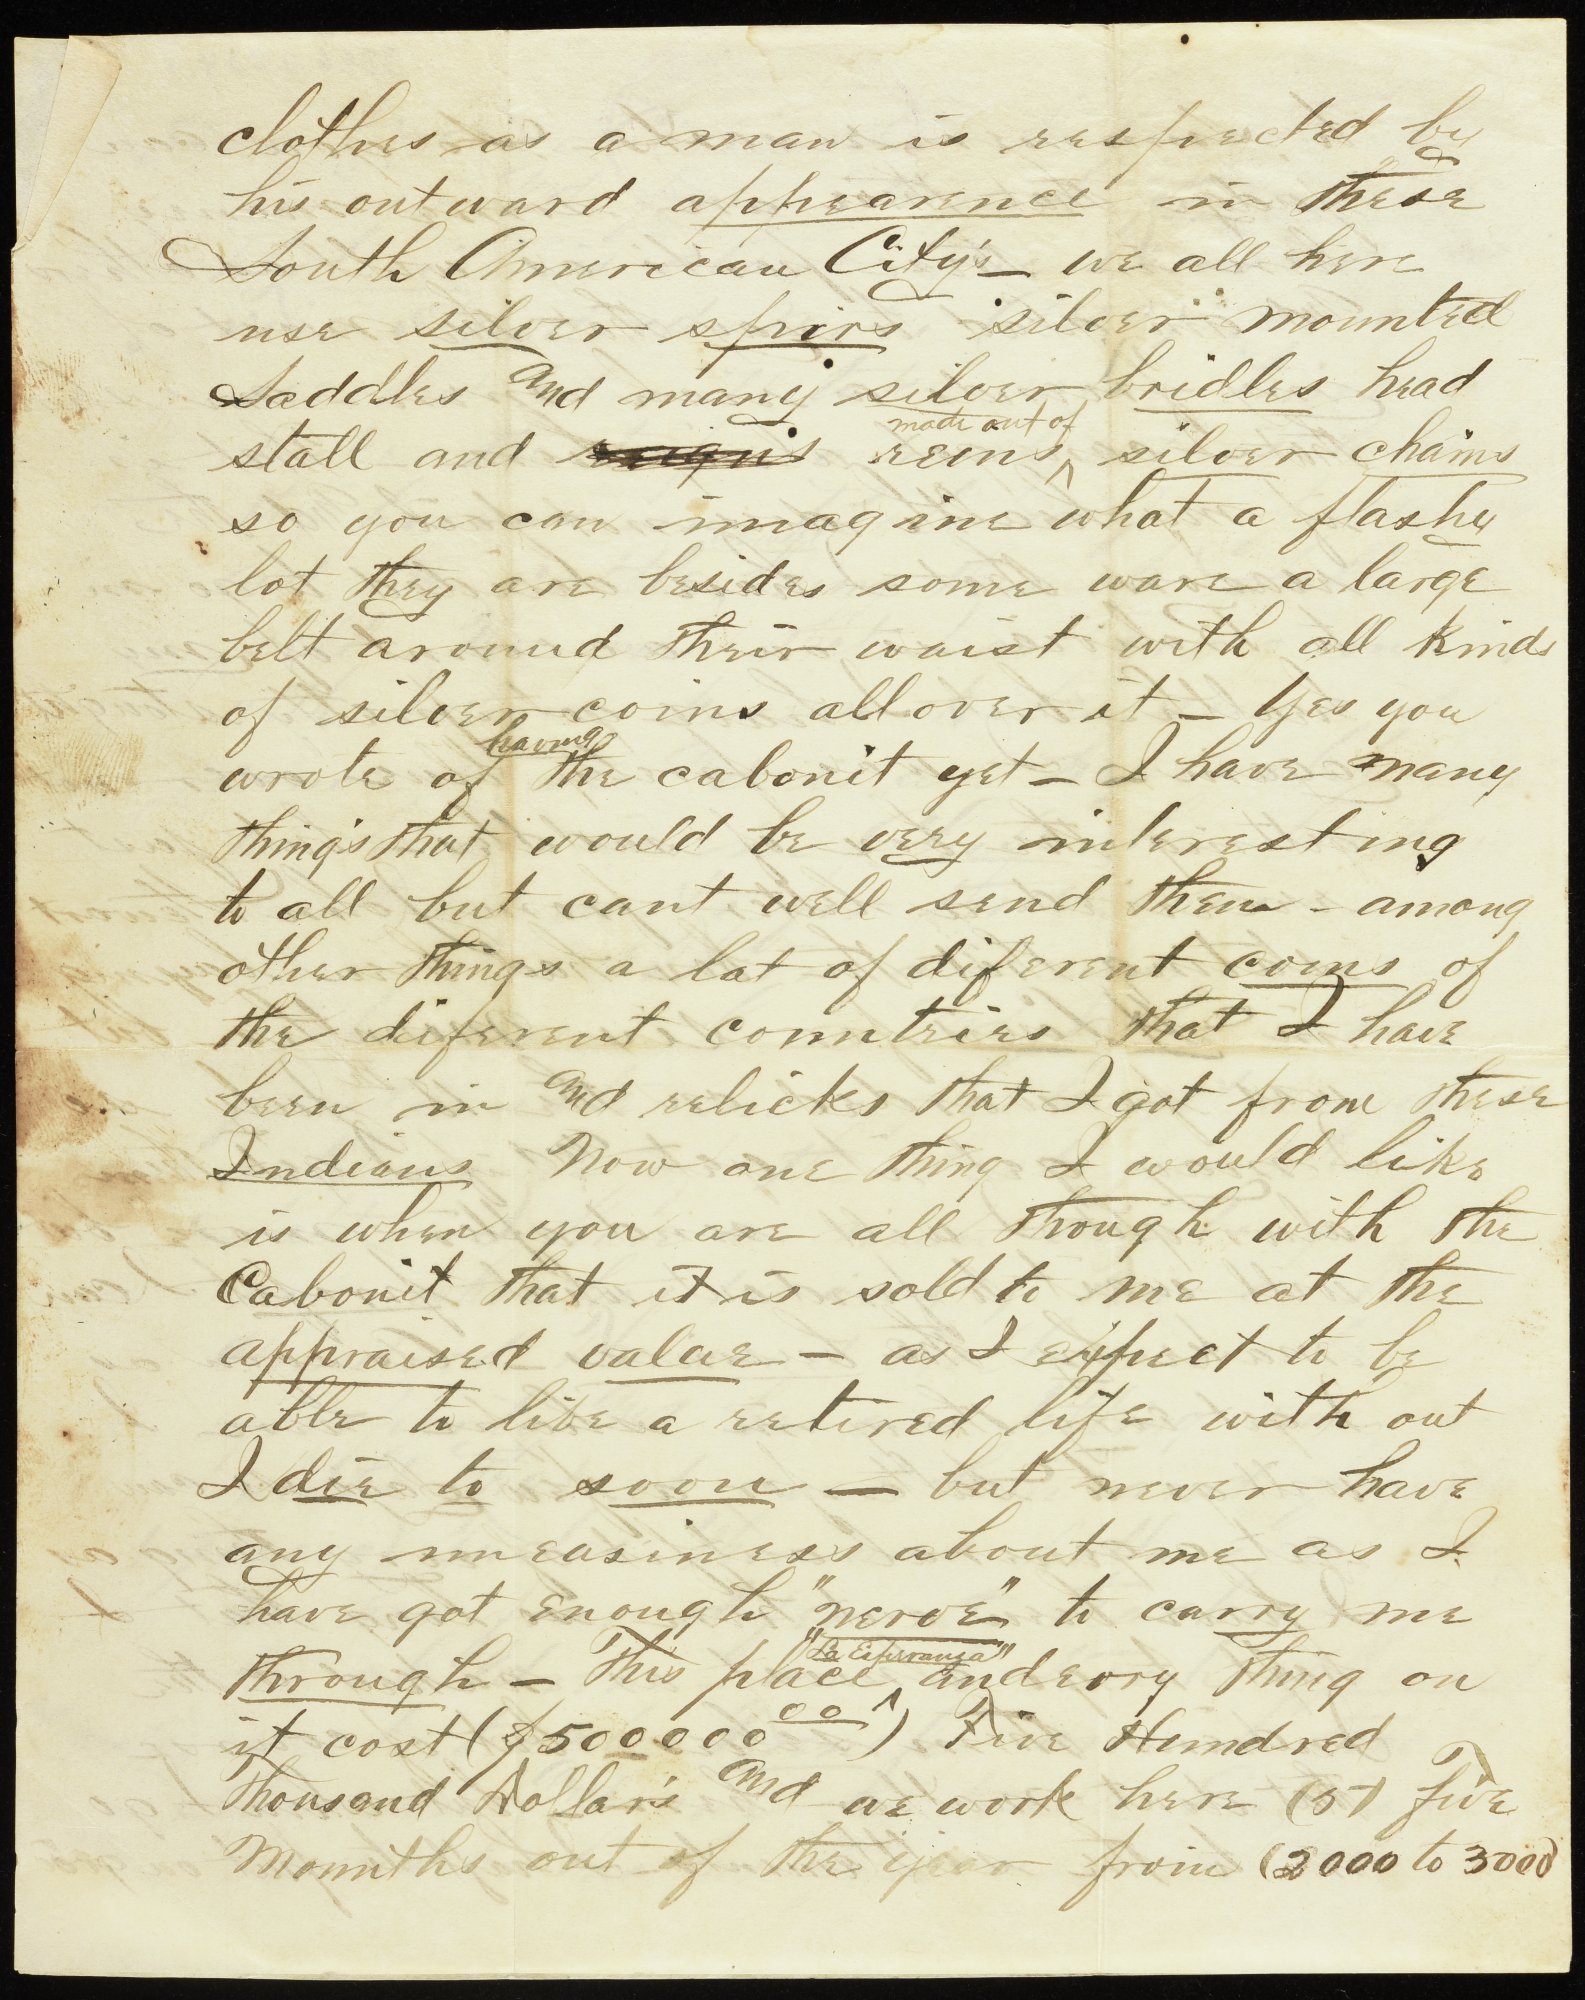 clothes as a man is respected by
his outward appearence in these
South American City's – we all here
use silver spirs silver mounted
Saddles and many silver bridles head
stall and reigns reins made out of silver chains
so you can imagine what a flashy
lot they are besides some ware a large
belt around their waist with all kinds
of silver coins all over it – Yes you
wrote of having the cabonit yet – I have many
things that would be very interesting
to all but cant well send them – among
other things a lot of diferent coins of
the diferent countries that I have
been in and relicks that I got from these
Indians Now one thing I would like
is when you are all through with the
Cabonit that it is sold to me at the
appraised value – as I expect to be
able to live a retired life with out
I die to soon – but never have
any uneasiness about me as I
have got enough "nerve" to carry me
through – This place "La Esperanza" and evry thing on
it cost ($500000 00) Five Hundred
Thousand Dollar's and we work here (5) five
Mounths out of the year from (2000 to 3000)